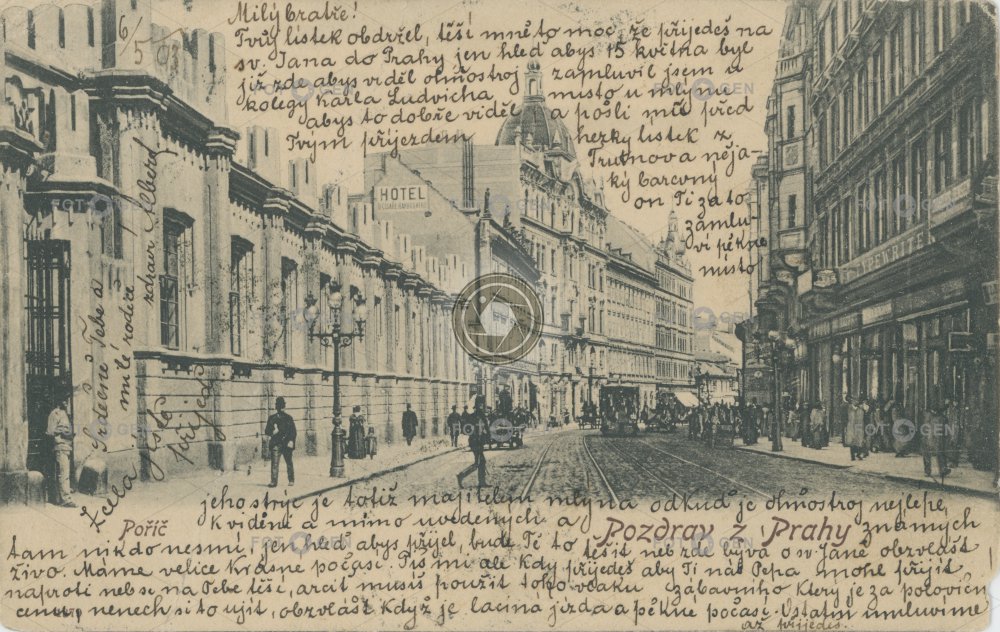 6/5 03
Milý bratře!
Tvůj lístek obdržel, těší mně to moc, že přijedeš na
sv. Jana do Prahy jen hleď abys 15 května byl
již zde abys viděl ohňostroj zamluvil jsem u
kolegy Karla Ludvicha místo u mlýna
abys to dobře viděl a pošli mně před
Tvým příjezdem hezky lístek z
Trutnova něja-
ký barevný
on Ti zato
zamlu-
ví pěkné
místo
jeho strýc je totiž majitelem mlýna odkud je ohňostroj nejlépe
k vidění a mimo uvedených a známých
tam nikdo nesmí, jen hleď abys přijel, bude Tě to těšit neb zde bývá o sv Janě obzvlášt
živo. Máme velice krásné počasí. Piš mi ale kdy přijedeš aby Ti náš Pepa mohl přijít
naproti neb se na Tebe těší, arcit musíš použít toho vlaku zábavního který je za poloviční
cenu, nenech si to ujít, obzvlášt když je laciná jízda a pěkné počasí. Ostatní umluvíme
až přijedeš.
Srdečně Tebe a
milé rodiče
zdraví
Zcela jistě
přijeď
HOTEL
Poříč
Pozdrav z Prahy
FOTOGEN